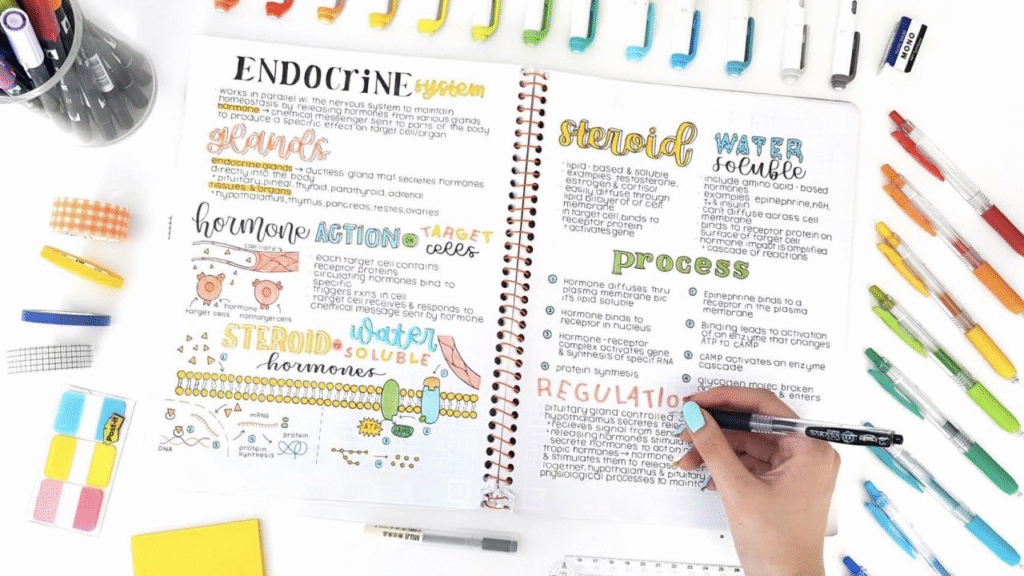 ENDOCRiNE system
works in parallel w/ the nervous system to maintain
homeostasis by releasing hormones from various glands
hormone → chemical messenger sent to parts of the body
to produce a specific effect on target cell/organ
glands
endocrine glands → ductless gland that secretes hormones
directly into the body
pituitary, pineal, thyroid, parathyroid, adrenal
tissues & organs
hypothalamus, thymus, pancreas, testes, ovaries
hormone ACTION ON TARGET
cells
capillary
target cells
hormone
nontarget cells
each target cell contains
receptor proteins
circulating hormones bind to
specific
triggers rxns in cell
target cell receives & responds to
chemical message sent by hormone
STEROID water
SOLUBLE
hormones
mRNA
DNA
protein
synthesis
protein
ATP
cAMP
steroid
lipid-based & soluble
examples: testosterone,
estrogen & cortisol
easily diffuse through
lipid bilayer of cell
membrane
in target cell, binds to
receptor protein
activates gene
WATER
soluble
include amino acid-based
hormones
examples: epinephrine, hGH,
T4 & insulin
can't diffuse across cell
membrane
binds to receptor protein on
surface of target cell
hormone impact is amplified
cascade of reactions
process
1 Hormone diffuses thru
plasma membrane b/c
it's lipid soluble
2 Hormone binds to
receptor in nucleus
3 Hormone-receptor
complex activates gene
& synthesis of specif RNA
4 protein synthesis
1 Epinephrine binds to a
receptor in the plasma
membrane
2 Binding leads to activation
of an enzyme that changes
ATP to CAMP
3 CAMP activates an enzyme
cascade
4 glycogen molec broken
& enters
REGULATIO
pituitary gland controlled
hypothalamus secretes
recieves signal from
releasing hormones
secrete hormones to
tropic hormones → hormone
& stimulates them to
together, hypothalamus & pituitary
physiological processes to
MONO
Post-it
MUJI
SARASA